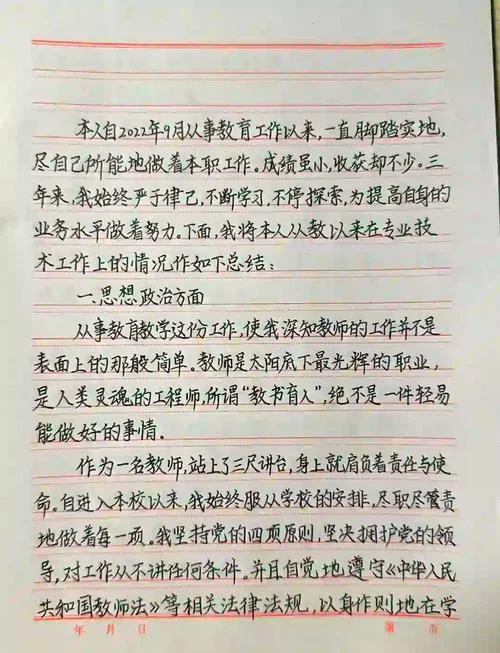 本人自2022年9月从事教育工作以来，一直脚踏实地，
尽自己所能地做着本职工作。成绩虽小，收获却不少。三
年来，我始终严于律己，不断学习，不停探索，为提高自身的
业务水平做着努力。下面，我将本人从教以来在专业技
术工作上的情况作如下总结：
一.思想政治方面
从事教育教学这份工作，使我深知教师的工作并不是
表面上的那般简单。教师是太阳底下最光辉的职业，
是人类灵魂的工程师，所谓“教书育人”，绝不是一件轻易
能做好的事情.
作为一名教师，站上了三尺讲台，身上就肩负着责任与使
命。自进入本校以来，我始终服从学校的安排，尽职尽管责
地做着每一项。我坚持党的四项原则，坚决拥护党的领
导，对工作从不讲任何条件。并且自觉地遵守《中华人民
共和国教师法》等相关法律法规，以身作则地在学
年 月 日 第 页